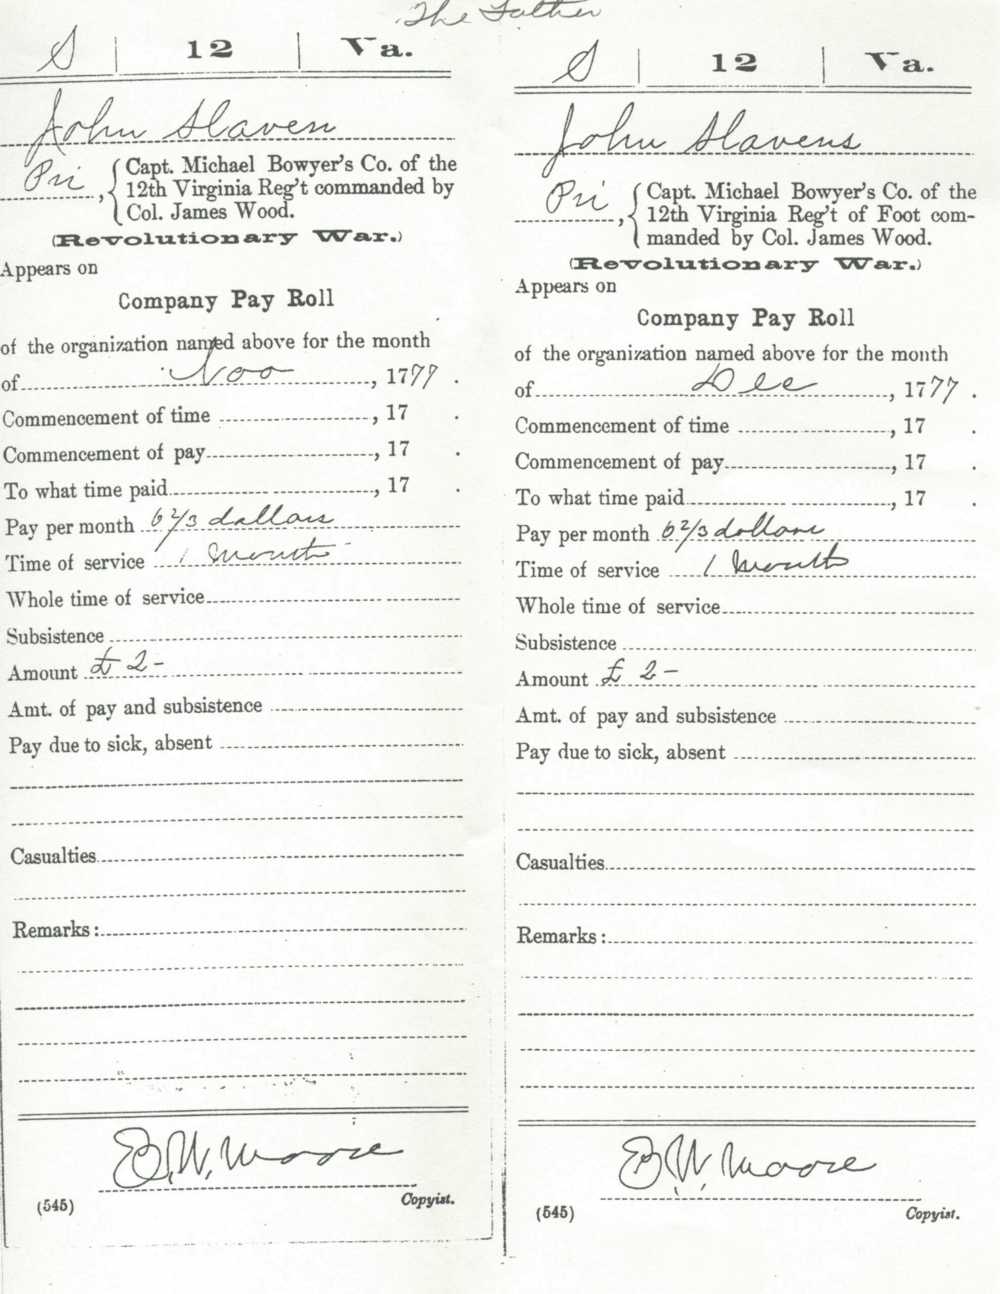 The Father
S 12 Va.
John Slaven
Pri , Capt. Michael Bowyer's Co. of the
12th Virginia Reg't commanded by
Col. James Wood.
(Revolutionary War.)
Appears on
Company Pay Roll
of the organization named above for the month
of Nov , 1777 .
Commencement of time , 17 .
Commencement of pay , 17 .
To what time paid , 17 .
Pay per month 6 2/3 dollars
Time of service 1 month
Whole time of service
Subsistence
Amount £ 2 -
Amt. of pay and subsistence
Pay due to sick, absent
Casualties
Remarks:
E. W. Moore
(545) Copyist.
S 12 Va.
John Slavens
Pri , Capt. Michael Bowyer's Co. of the
12th Virginia Reg't of Foot com-
manded by Col. James Wood.
(Revolutionary War.)
Appears on
Company Pay Roll
of the organization named above for the month
of Dec , 1777 .
Commencement of time , 17 .
Commencement of pay , 17 .
To what time paid , 17 .
Pay per month 6 2/3 dollars
Time of service 1 month
Whole time of service
Subsistence
Amount £ 2 -
Amt. of pay and subsistence
Pay due to sick, absent
Casualties
Remarks:
E. W. Moore
(545) Copyist.